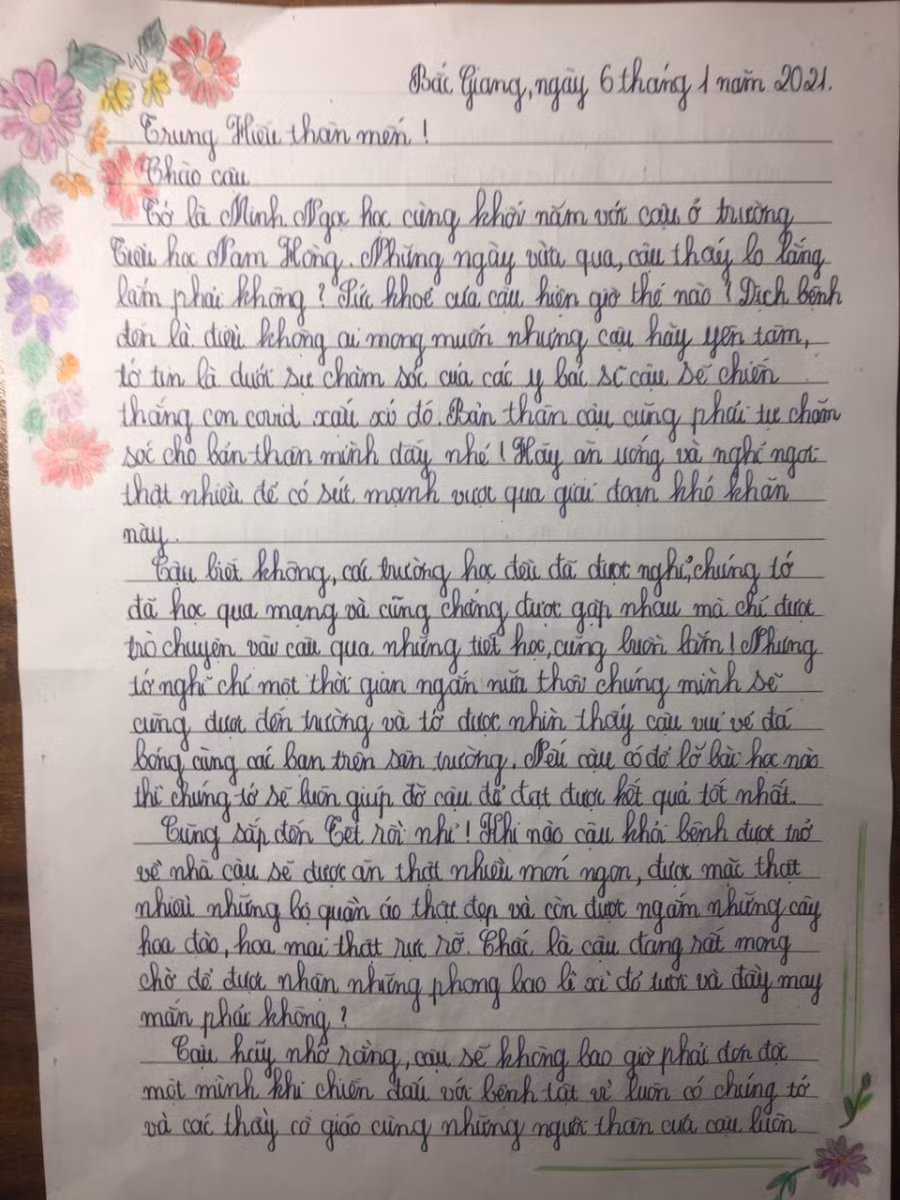 Bắc Giang, ngày 6 tháng 1 năm 2021.
Trung Hiếu thân mến !
Chào cậu
Tớ là Minh Ngọc học cùng khối năm với cậu ở trường
Tiểu học Nam Hồng. Những ngày vừa qua, cậu thấy lo lắng
lắm phải không ? Sức khoẻ của cậu hiện giờ thế nào ? Dịch bệnh
đến là điều không ai mong muốn nhưng cậu hãy yên tâm,
tớ tin là dưới sự chăm sóc của các y bác sĩ cậu sẽ chiến
thắng con covid xấu xí đó. Bản thân cậu cũng phải tự chăm
sóc cho bản thân mình đấy nhé ! Hãy ăn uống và nghỉ ngơi
thật nhiều để có sức mạnh vượt qua giai đoạn khó khăn
này.
Cậu biết không, các trường học đều đã được nghỉ, chúng tớ
đã học qua mạng và cũng chẳng được gặp nhau mà chỉ được
trò chuyện vài câu qua những tiết học, cũng buồn lắm ! Nhưng
tớ nghĩ chỉ một thời gian ngắn nữa thôi chúng mình sẽ
cũng được đến trường và tớ được nhìn thấy cậu vui vẻ đá
bóng cùng các bạn trên sân trường. Nếu cậu có để lỡ bài học nào
thì chúng tớ sẽ luôn giúp đỡ cậu để đạt được kết quả tốt nhất.
Cũng sắp đến Tết rồi nhỉ ! Khi nào cậu khỏi bệnh được trở
về nhà cậu sẽ được ăn thật nhiều món ngon, được mặc thật
nhiều những bộ quần áo thật đẹp và còn được ngắm những cây
hoa đào, hoa mai thật rực rỡ. Chắc là cậu đang rất mong
chờ để được nhận những phong bao lì xì đỏ tươi và đầy may
mắn phải không ?
Cậu hãy nhớ rằng, cậu sẽ không bao giờ phải đơn độc
một mình khi chiến đấu với bệnh tật vì luôn có chúng tớ
và các thầy cô giáo cùng những người thân của cậu luôn